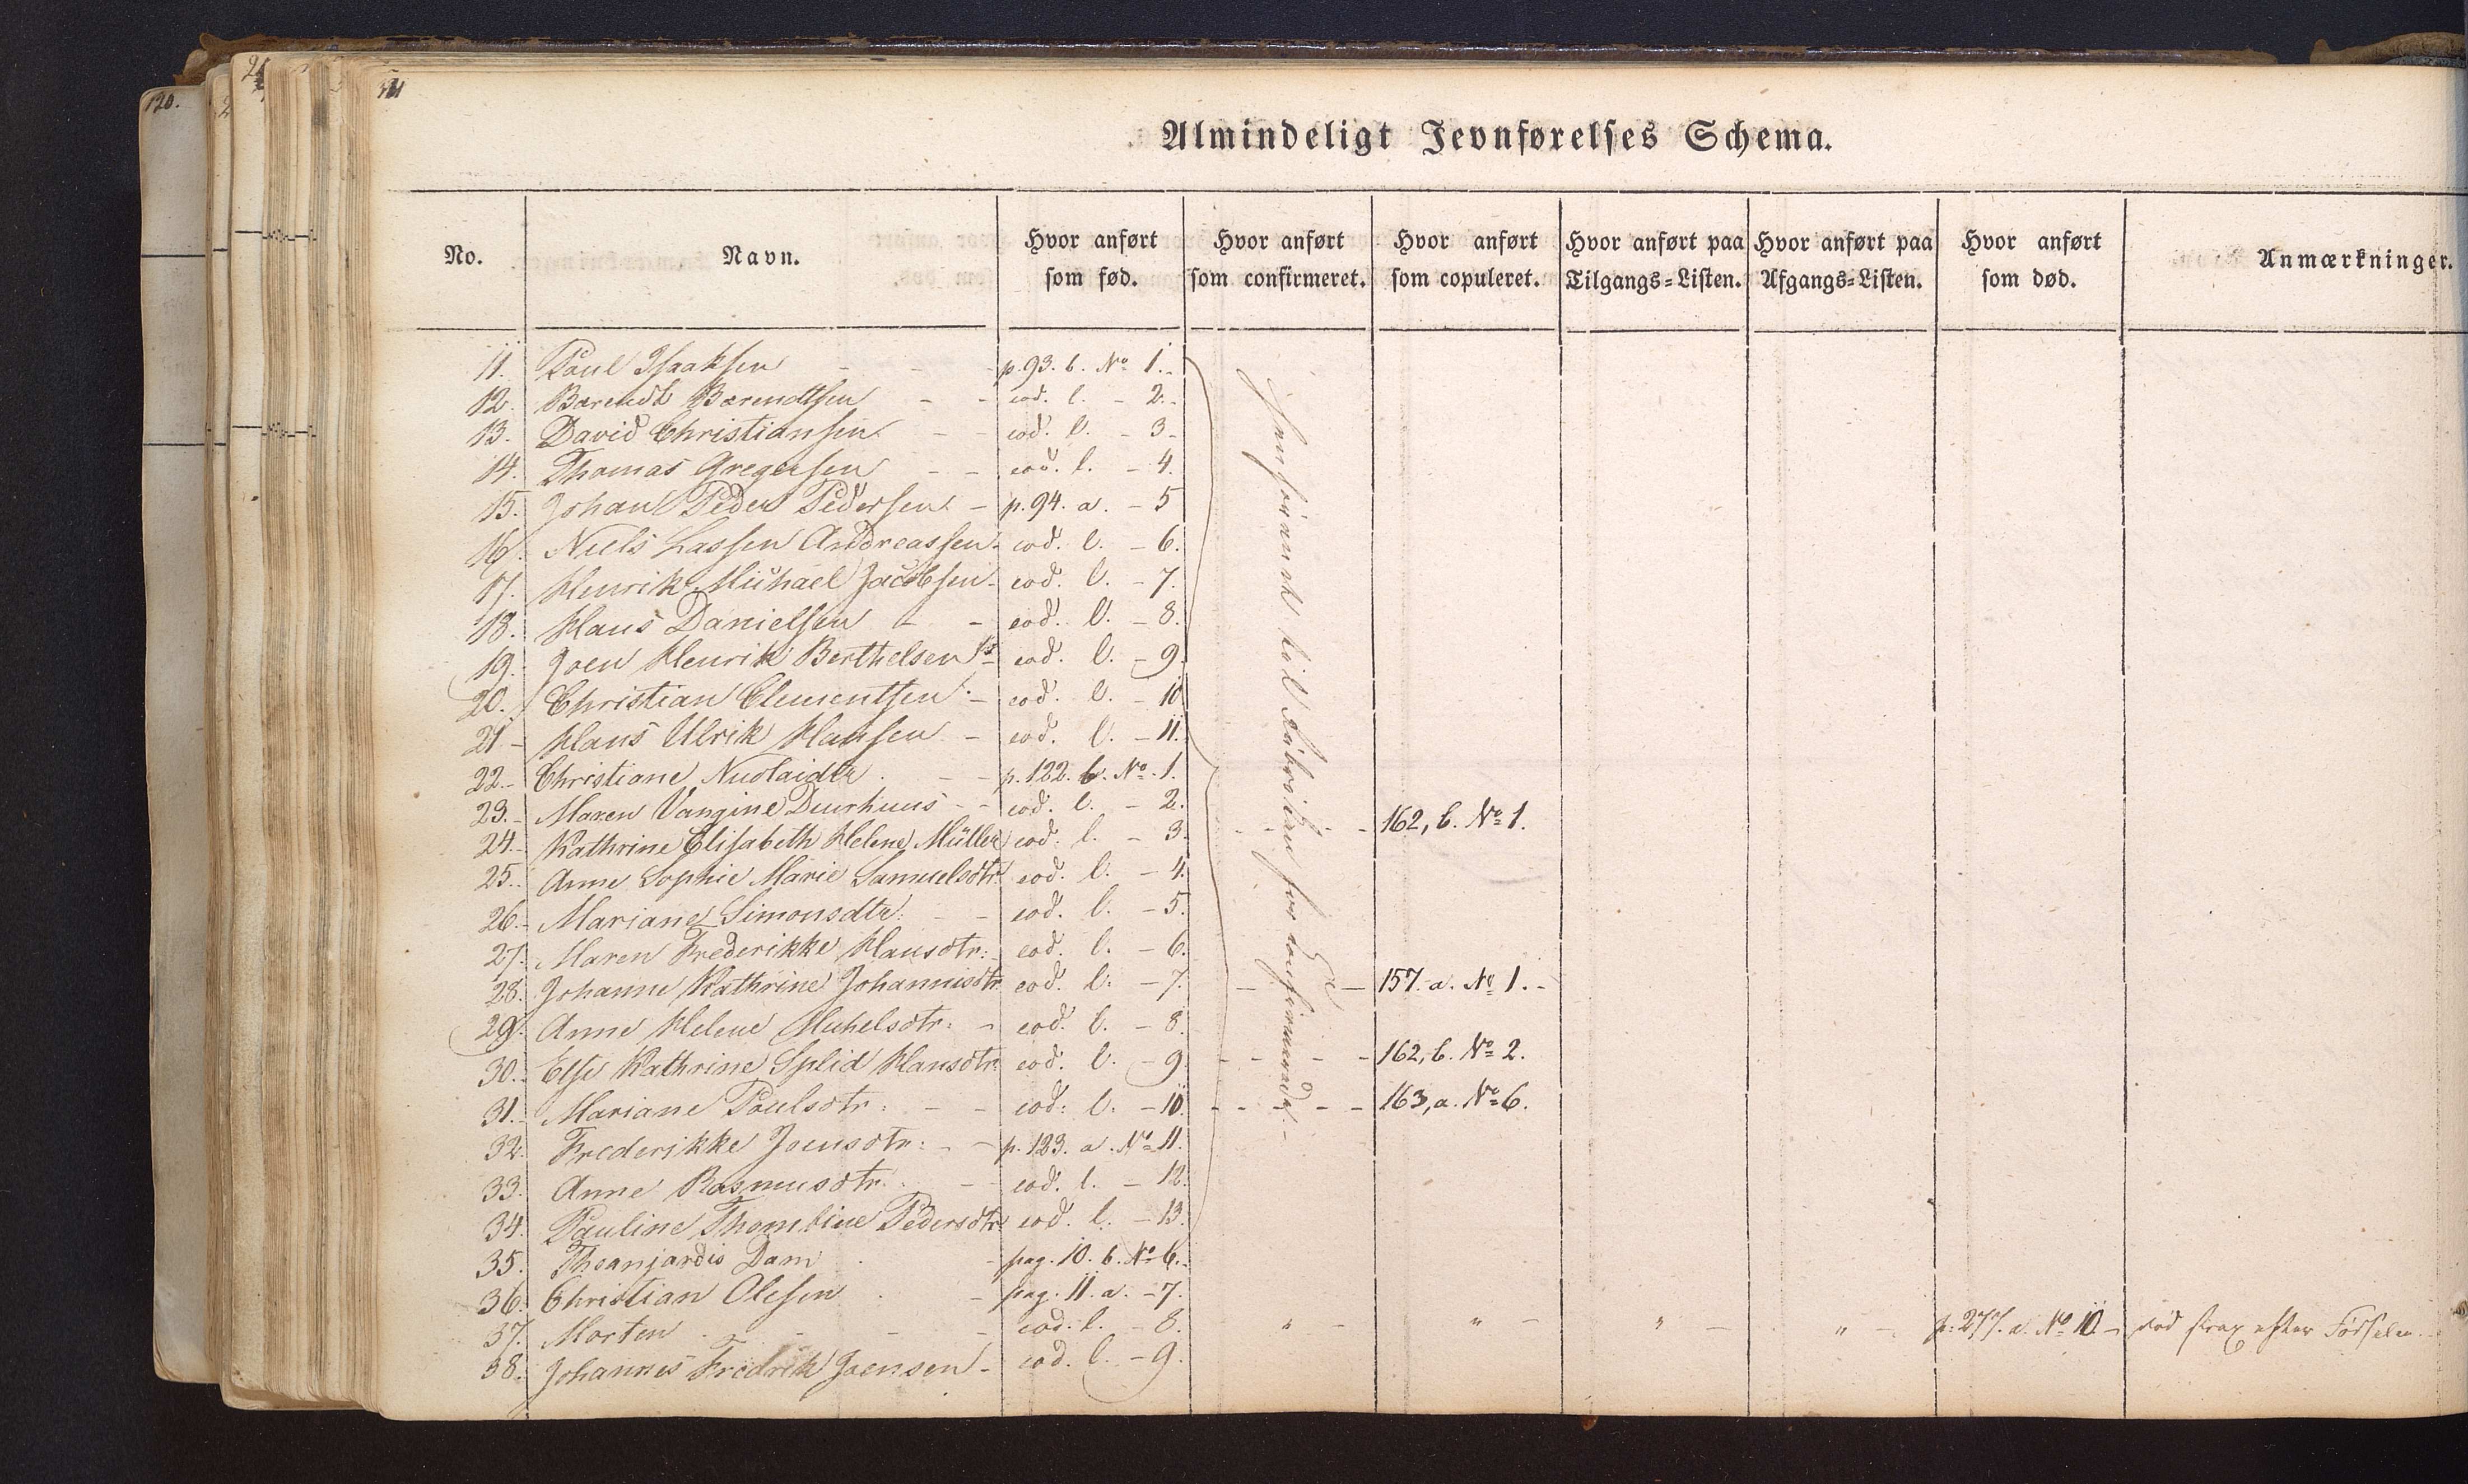 120.
Almindeligt Jevnførelses Schema.
No. Navn. Hvor anført som fød. Hvor anført som confirmeret. Hvor anført som copuleret. Hvor anført paa Tilgangs-Listen. Hvor anført paa Afgangs-Listen. Hvor anført som død. Anmærkninger.
11. Poul Isaaksen - - - p. 93. b. No 1.-
12. Barendt Barendtsen - - eod. l. - 2.-
13. David Christiansen - - eod. l. - 3-
14. Thomas Gregersen - - eod. l. - 4.
15. Johan Peder Pedersen. - p. 94. a. - 5
16. Niels Lassen Andreassen. eod. l. - 6.
17. Henrik Michael Jacobsen - eod. l. - 7.
18. Hans Danielsen - - eod. l. - 8.
19. Joen Henrik Berthelsen eod. l. - 9.
20. Christian Clementsen - eod. l. - 10
21 - Hans Ulrik Hansen - eod. l. - 11.
22.- Christiane Nicolaidtr. - - p. 122. b. No. 1.
23.- Maren Vangine Duurhuus - - eod. l. - 2.
24.- Kathrine Elisabeth Helene Müller eod. l. - 3. - - - - 162, b. No 1.
25.. Anne Sophie Marie Samuelsdtr. eod. l. - 4.
26.- Mariane Simonsdtr. - - eod. l. - 5.
27. Maren Frederikke Hansdtr: - eod. l. - 6.
28. Johanne Kathrine Johannisdtr. eod. l. - 7. - - - 157. a. No 1. -
29. Anne Helene Michelsdtr. - eod. l. - 8.
30.. Else Kathrine Splid Hansdtr. eod. l. - 9. - - - - 162, b. No 2.
31.- Mariane Poulsdtr. - - eod. l. - 10. - - - - - 163, a. No 6.
32. Frederikke Joensdtr: - - p. 123. a. No 11.
33. Anne Rasmusdtr. - - eod. l. - 12.
34. Pauline Thomine Pedersdtr. eod. l. - 13.
35. Dam - pag. 10. b. No 6.
36. Christian Olesen - pag. 11. a. - 7.
37. Morten - - - eod. l. - 8. " - " - " - " - p. 277. a. No 10 - død strax efter Fødselen.
38. Johannes Fredrik Joensen - eod. l. - 9.